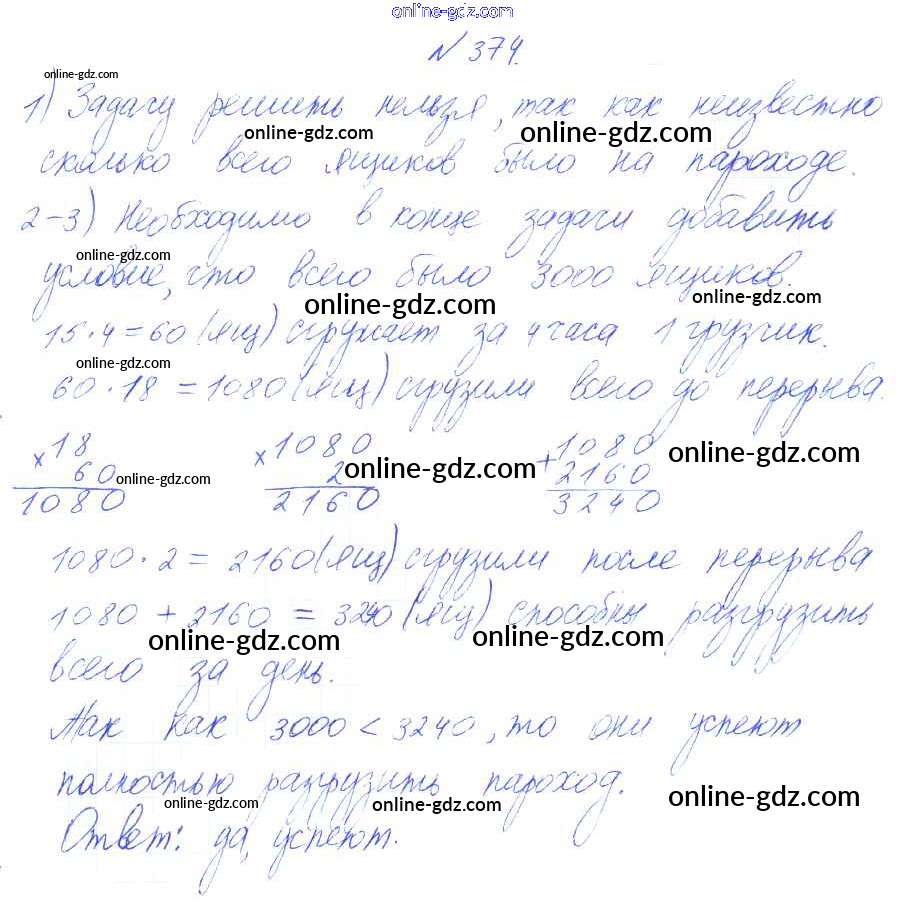 online-gdz.com
N 374.
online-gdz.com
1) Задачу решить нельзя, так как неизвестно
online-gdz.com online-gdz.com
сколько всего ящиков было на пароходе.
2-3) Необходимо в конце задачи добавить
online-gdz.com
условие, что всего было 3000 ящиков.
online-gdz.com online-gdz.com
15·4=60 (ящ) сгружает за 4 часа 1 грузчик.
online-gdz.com
60·18=1080 (ящ) сгрузили всего до перерыва.
×18 ×1080 +1080 online-gdz.com
60 online-gdz.com 2 online-gdz.com 2160
1080 2160 3240
1080·2=2160 (ящ) сгрузили после перерыва
1080+2160=3240 (ящ) способны разгрузить
online-gdz.com online-gdz.com
всего за день.
Так как 3000<3240, то они успеют
полностью разгрузить пароход.
online-gdz.com online-gdz.com online-gdz.com
Ответ: да, успеют.